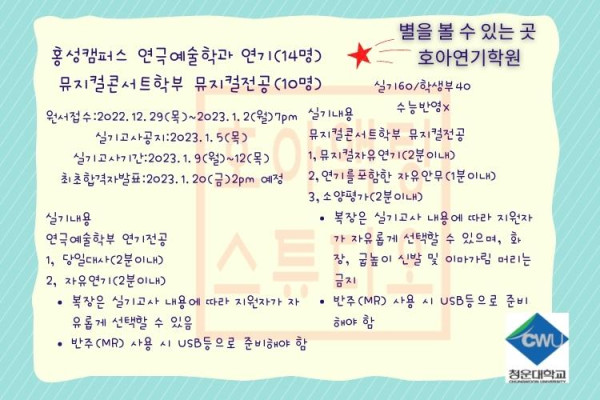 별을 볼 수 있는 곳
호아연기학원
홍성캠퍼스 연극예술학과 연기(14명)
뮤지컬콘서트학부 뮤지컬전공(10명)
실기60/학생부40
수능반영x
원서접수:2022.12.29(목)~2023.1.2(월)7pm
실기고사공지:2023.1.5(목)
실기고사기간:2023.1.9(월)~12(목)
최초합격자발표:2023.1.20(금)2pm 예정
실기내용
연극예술학부 연기전공
1, 당일대사(2분이내)
2, 자유연기(2분이내)
• 복장은 실기고사 내용에 따라 지원자가 자
유롭게 선택할 수 있음
• 반주(MR) 사용 시 USB등으로 준비해야 함
실기내용
뮤지컬콘서트학부 뮤지컬전공
1,뮤지컬자유연기(2분이내)
2,연기를포함한 자유안무(1분이내)
3,소양평가(2분이내)
• 복장은 실기고사 내용에 따라 지원자
가 자유롭게 선택할 수 있으며, 화
장, 굽높이 신발 및 이마가림 머리는
금지
• 반주(MR) 사용 시 USB등으로 준비
해야 함
호아액팅
스튜디오
CWU
청운대학교
CHUNGWOON UNIVERSITY